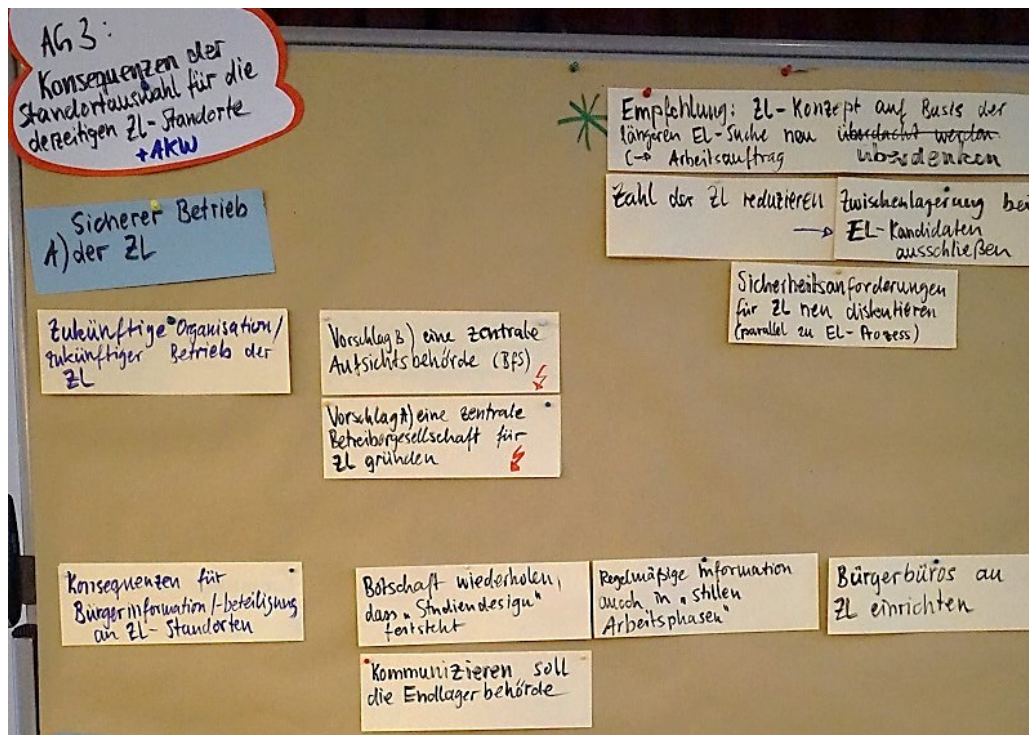 AG 3:
Konsequenzen der
Standortauswahl für die
derzeitigen ZL-Standorte
+AKW
Empfehlung: ZL-Konzept auf Basis der
längeren EL-Suche neu überdacht werden
(→ Arbeitsauftrag überdenken
Sicherer Betrieb
A) der ZL
Zahl der ZL reduzieren
→
Zwischenlagerung bei
EL-Kandidaten
ausschließen
Sicherheitsanforderungen
für ZL neu diskutieren
(parallel zu EL-Prozess)
Zukünftige Organisation/
zukünftiger Betrieb der
ZL
Vorschlag B) eine zentrale
Aufsichtsbehörde (BfS)
Vorschlag A) eine zentrale
Betreibergesellschaft für
ZL gründen
Konsequenzen für
Bürgerinformation/-beteiligung
an ZL-Standorten
Botschaft wiederholen,
dass "Studiendesign"
feststeht
Regelmäßige Information
auch in "stillen
Arbeitsphasen"
Bürgerbüros an
ZL einrichten
Kommunizieren soll
die Endlagerbehörde